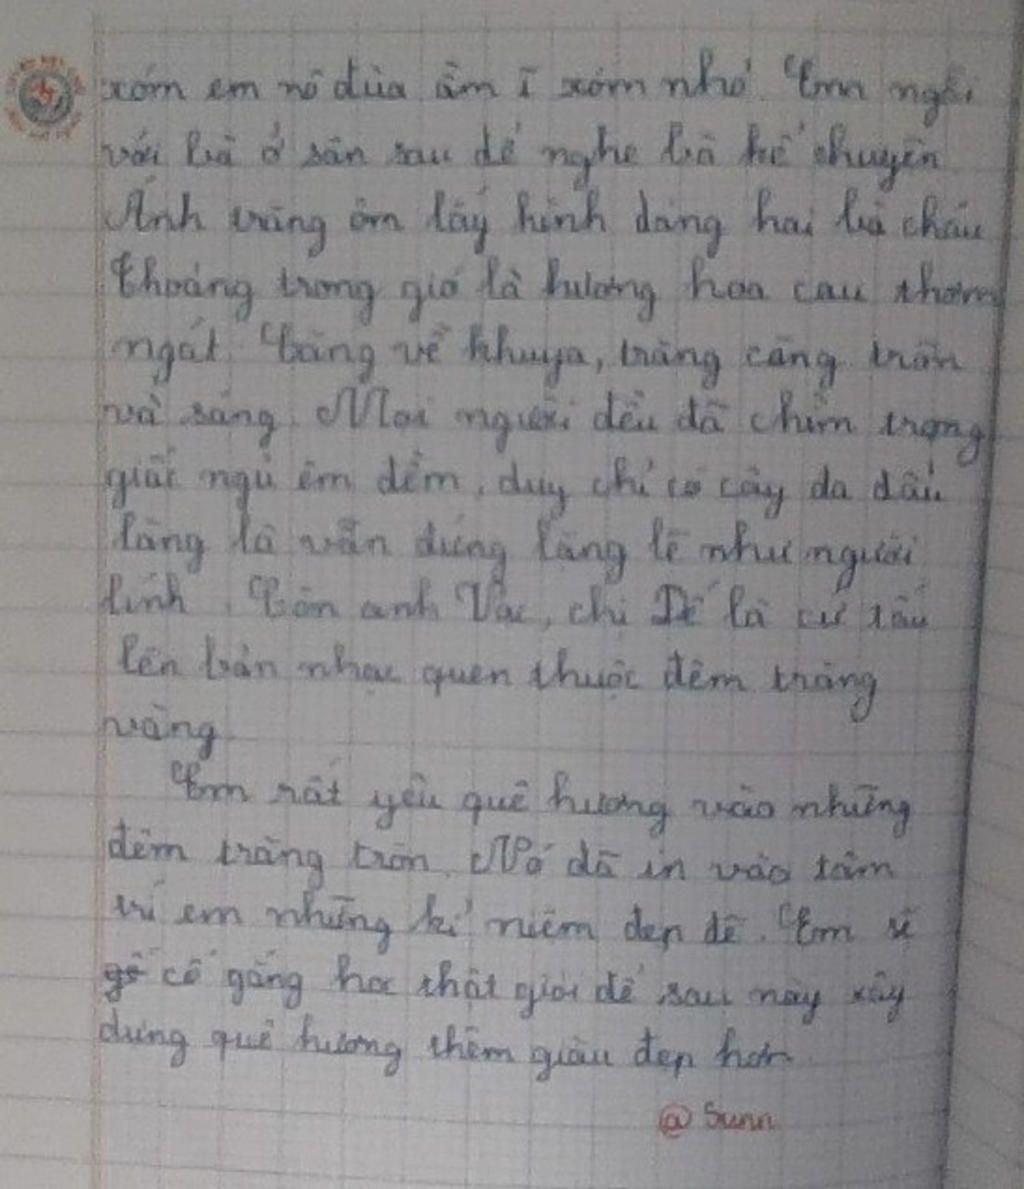 xóm em nô đùa ầm ĩ xóm nhỏ. Em ngồi
với bà ở sân sau để nghe bà kể chuyện.
Ánh trăng ôm lấy hình dáng hai bà cháu.
Thoảng trong gió là hương hoa cau thơm
ngát. Càng về khuya, trăng càng tròn
và sáng. Mọi người đều đã chìm trong
giấc ngủ êm đềm, duy chỉ có cây đa đầu
làng là vẫn đứng lặng lẽ như người
lính. Còn anh Vạc, chị Dế là cứ tấu
lên bản nhạc quen thuộc đêm trăng
vàng.
Em rất yêu quê hương vào những
đêm trăng tròn. Nó đã in vào tâm
trí em những kỉ niệm đẹp đẽ. Em sẽ
cố gắng học thật giỏi để sau này xây
dựng quê hương thêm giàu đẹp hơn.
@ Sunn